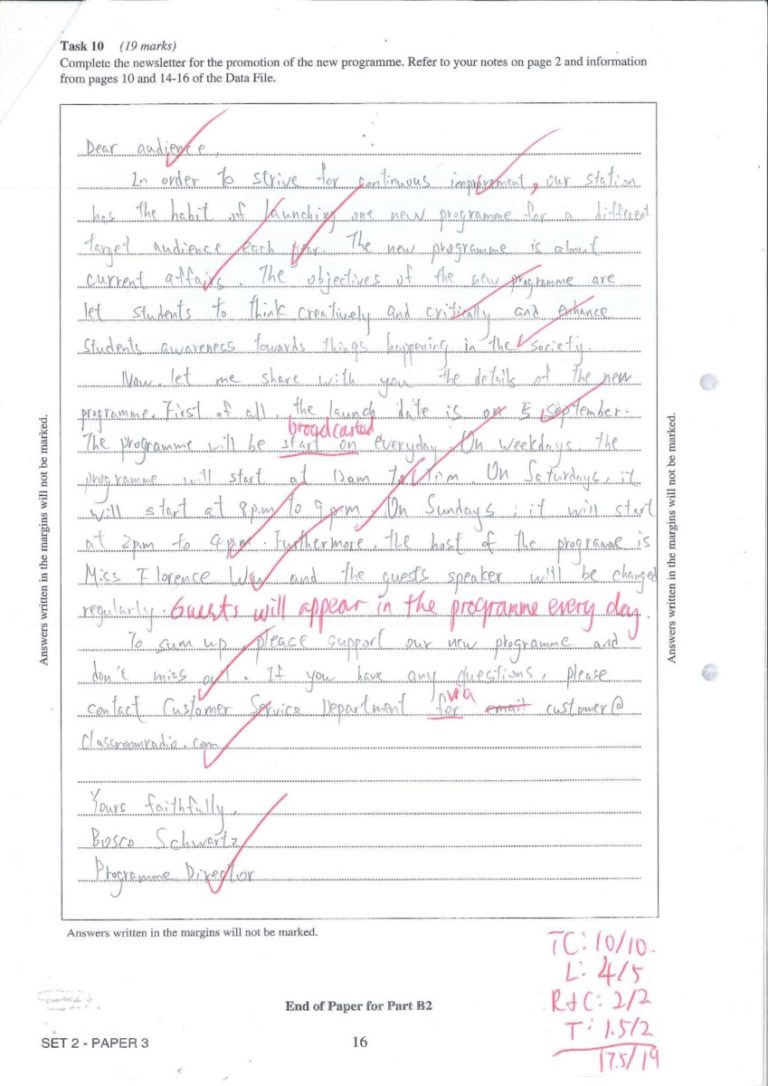 Task 10 (19 marks)
Complete the newsletter for the promotion of the new programme. Refer to your notes on page 2 and information
from pages 10 and 14-16 of the Data File.
Dear audience,
In order to strive for continuous improvement, our station
has the habit of launching one new programme for a different
target audience each year. The new programme is about
current affairs. The objectives of the new programme are
let students to think creatively and critically and enhance
students awareness towards things happening in the society.
Now, let me share with you the details of the new
programme. First of all, the launch date is on 5 September.
broadcasted
The programme will be start on everyday. On weekdays, the
programme will start at to . On Saturdays, it
will start at 8p.m to 9p.m. On Sundays, it will start
at 2pm to 4pm. Furthermore, the host of the programme is
Miss Florence and the guests speaker will be changed
regularly. Guests will appear in the programme every day.
To sum up, please support our new programme and
don't miss out. If you have any questions, please
via
contact Customer Service Department for email customer@
classroomradio.com
Yours faithfully,
Bosco Schwartz
Programme Director
Answers written in the margins will not be marked.
Answers written in the margins will not be marked.
Answers written in the margins will not be marked.
TC: 10/10.
L: 4/5
R+C: 2/2
T: 1.5/2
17.5/19
End of Paper for Part B2
SET 2 - PAPER 3
16